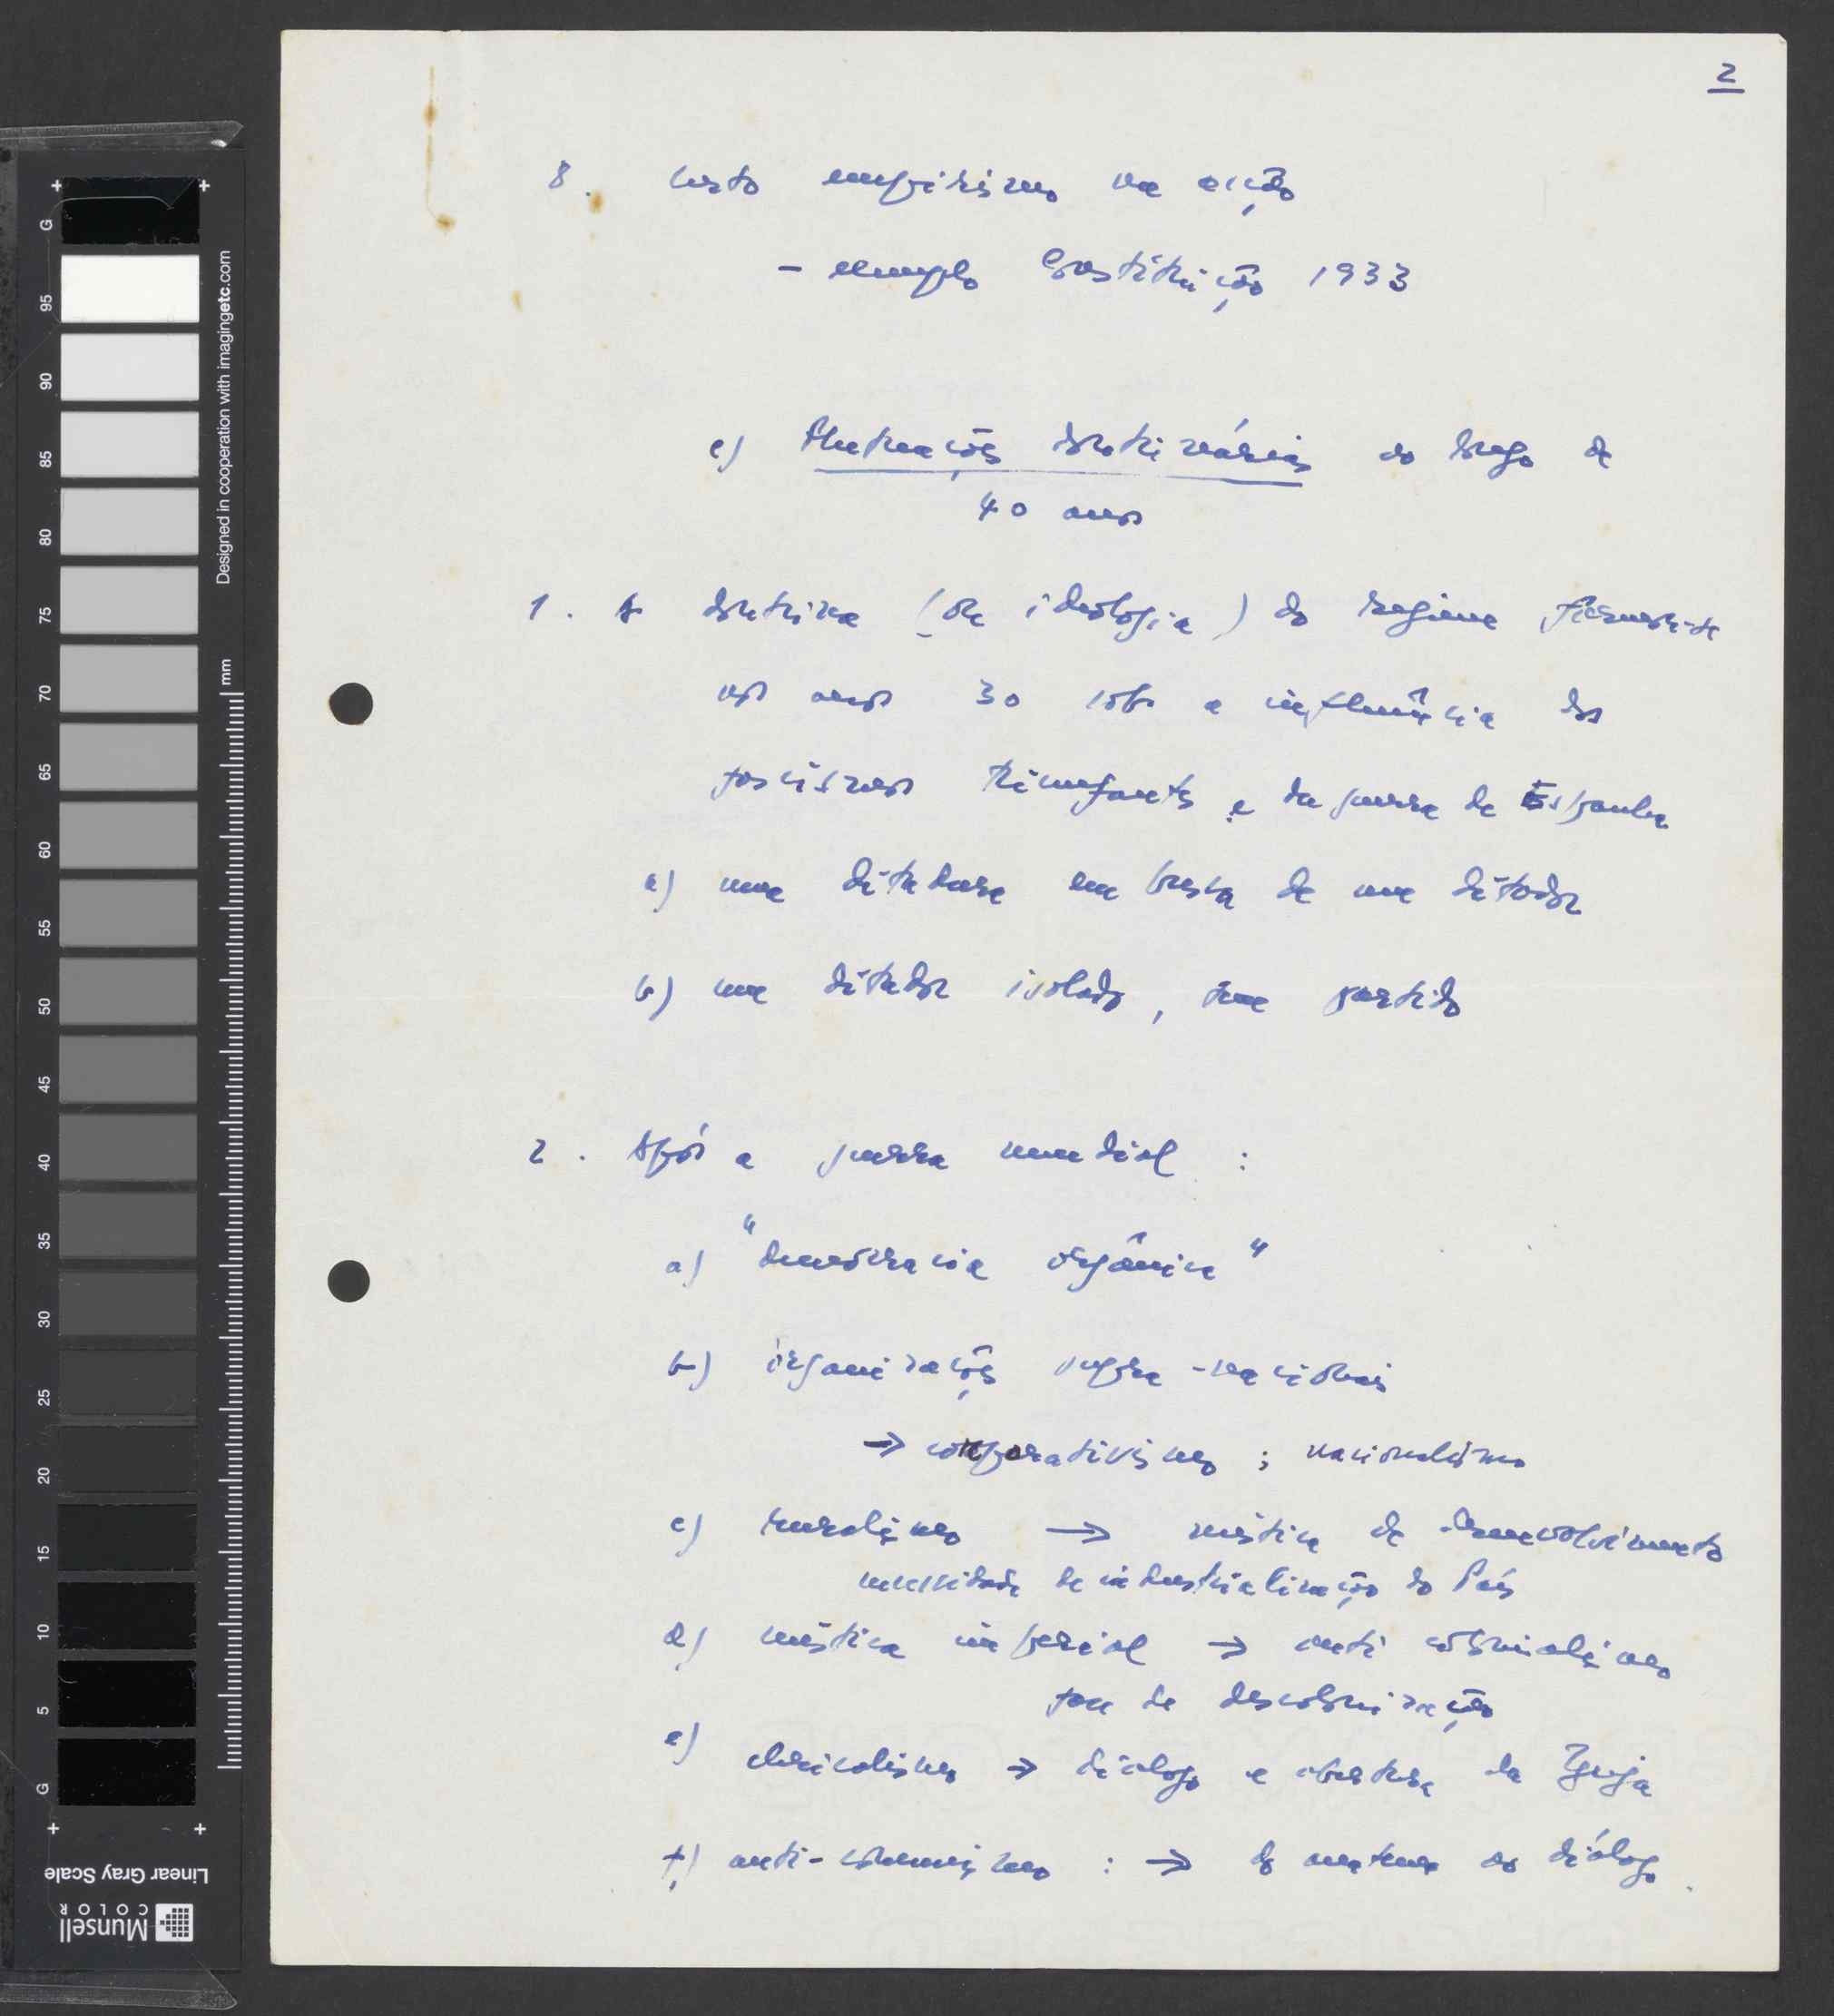 2
8. certo empirismo na acção
– exemplo Constituição 1933
c) flutuações doutrinárias ao longo de
40 anos
1. A doutrina (ou ideologia) do regime
nos anos 30 sob a influência dos
fascismos triunfantes e da guerra de Espanha
a) uma ditadura em busca de um ditador
b) um ditador isolado, sem partido
2. Após a guerra mundial :
a) "democracia orgânica"
b) organizações supra-nacionais
→ corporativismo ; nacionalismo
c) ruralismo → mística de desenvolvimento
necessidade de industrialização do País
d) mística imperial → anti colonialismo
fase de descolonização
e) clericalismo → diálogo e abertura da Igreja
f) anti-comunismo : → do anátema ao diálogo.
G 95 90 85 80 75 70 65 60 55 50 45 40 35 30 25 20 15 10 5 G
Designed in cooperation with imagingetc.com
mm
Linear Gray Scale
Munsell
COLOR